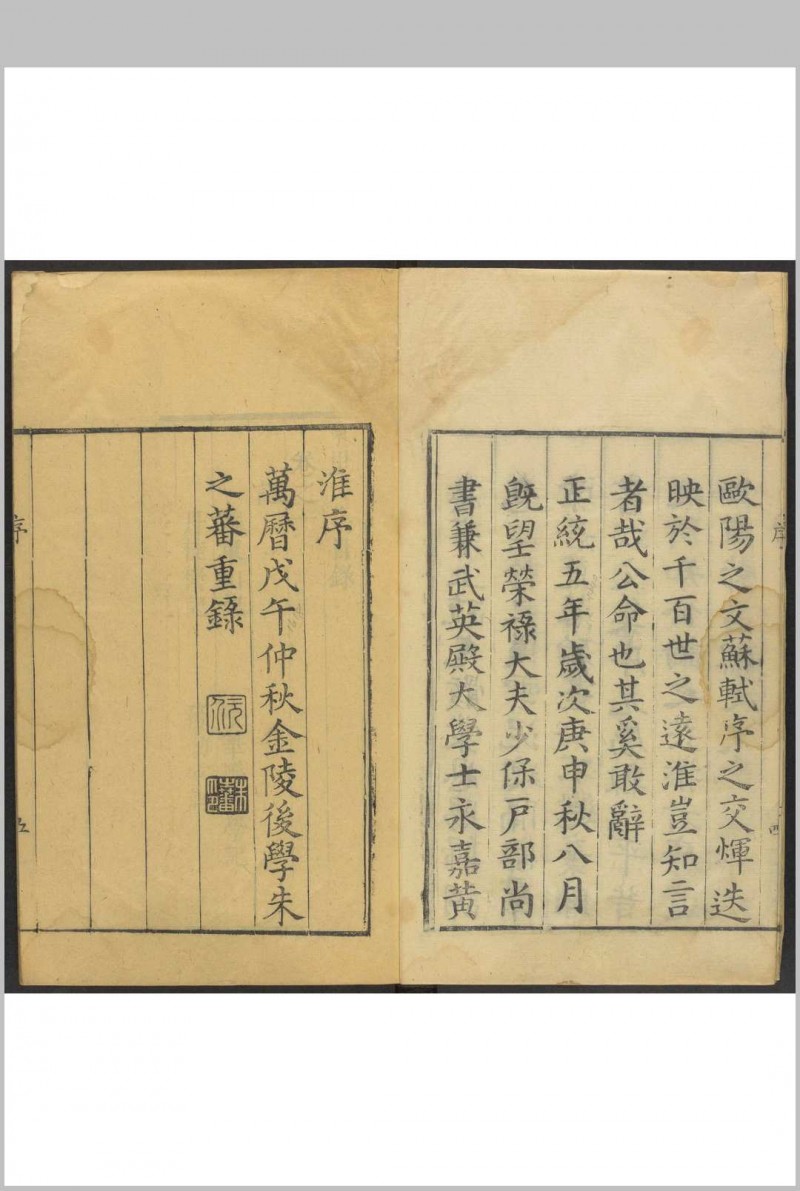 歐陽之文蘇軾序之交煇迭
映於千百世之遠淮豈知言
者哉公命也其奚敢辭
正統五年歲次庚申秋八月
旣望榮祿大夫少保戶部尚
書兼武英殿大學士永嘉黃
淮序
萬曆戊午仲秋金陵後學朱
之蕃重錄
序
四
序
五